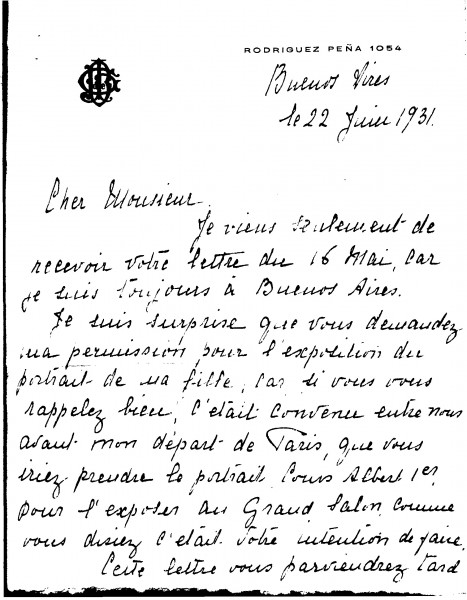 RODRIGUEZ PEÑA 1054
Buenos Aires
le 22 Juin 1931.
Cher Monsieur
Je viens seulement de
recevoir votre lettre du 16 Mai, car
je suis toujours à Buenos Aires.
Je suis surprise que vous demandez
ma permission pour l'exposition du
portrait de ma fille, car si vous vous
rappelez bien, c'était convenu entre nous
avant mon départ de Paris, que vous
iriez prendre le portrait Cours Albert 1er
pour l'exposer au Grand Salon, comme
vous disiez c'était votre intention de faire.
Cette lettre vous parviendrez tard